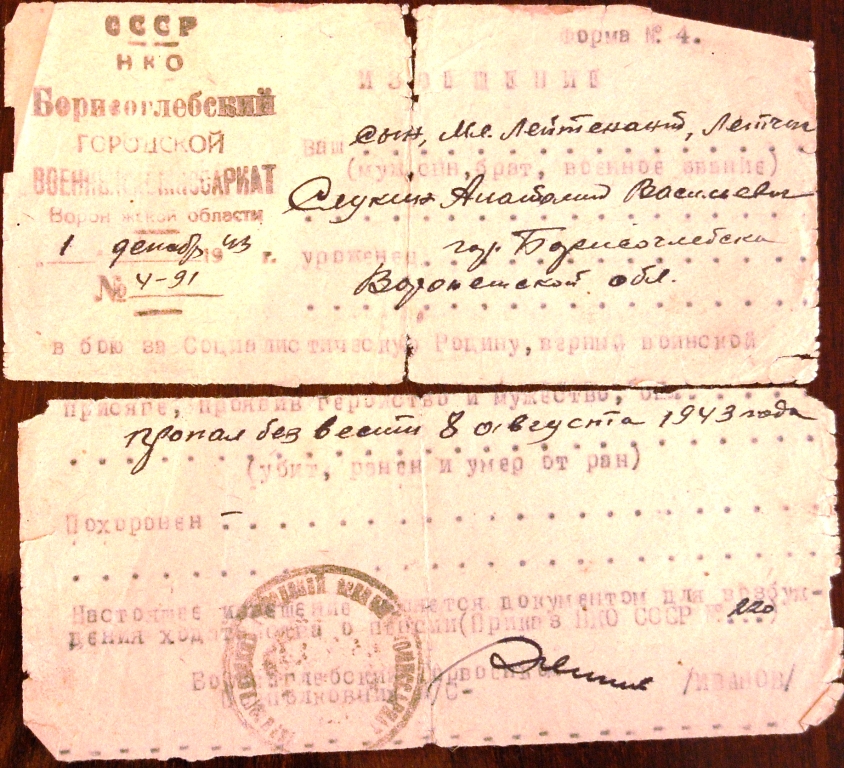 СССР
НКО
Борисоглебский
ГОРОДСКОЙ
ВОЕННЫЙ КОМИССАРИАТ
Воронежской области
1 декабр 1943 г.
№ 4-91
Форма № 4.
ИЗВЕЩЕНИЕ
Ваш сын, Мл. Лейтенант, Летчик
(муж, сын, брат, военное звание)
Анатолий Васильевич
уроженец гор. Борисоглебска
Воронежской обл.
в бою за Социалистическую Родину, верный воинской
присяге, проявив геройство и мужество, был
пропал без вести 8 августа 1943 года
(убит, ранен и умер от ран)
Похоронен –
Настоящее извещение является документом для возбуж-
дения ходатайства о пенсии (Приказ НКО СССР № 220)
Борисоглебский Горвоенком
полковник /С- /ИВАНОВ/